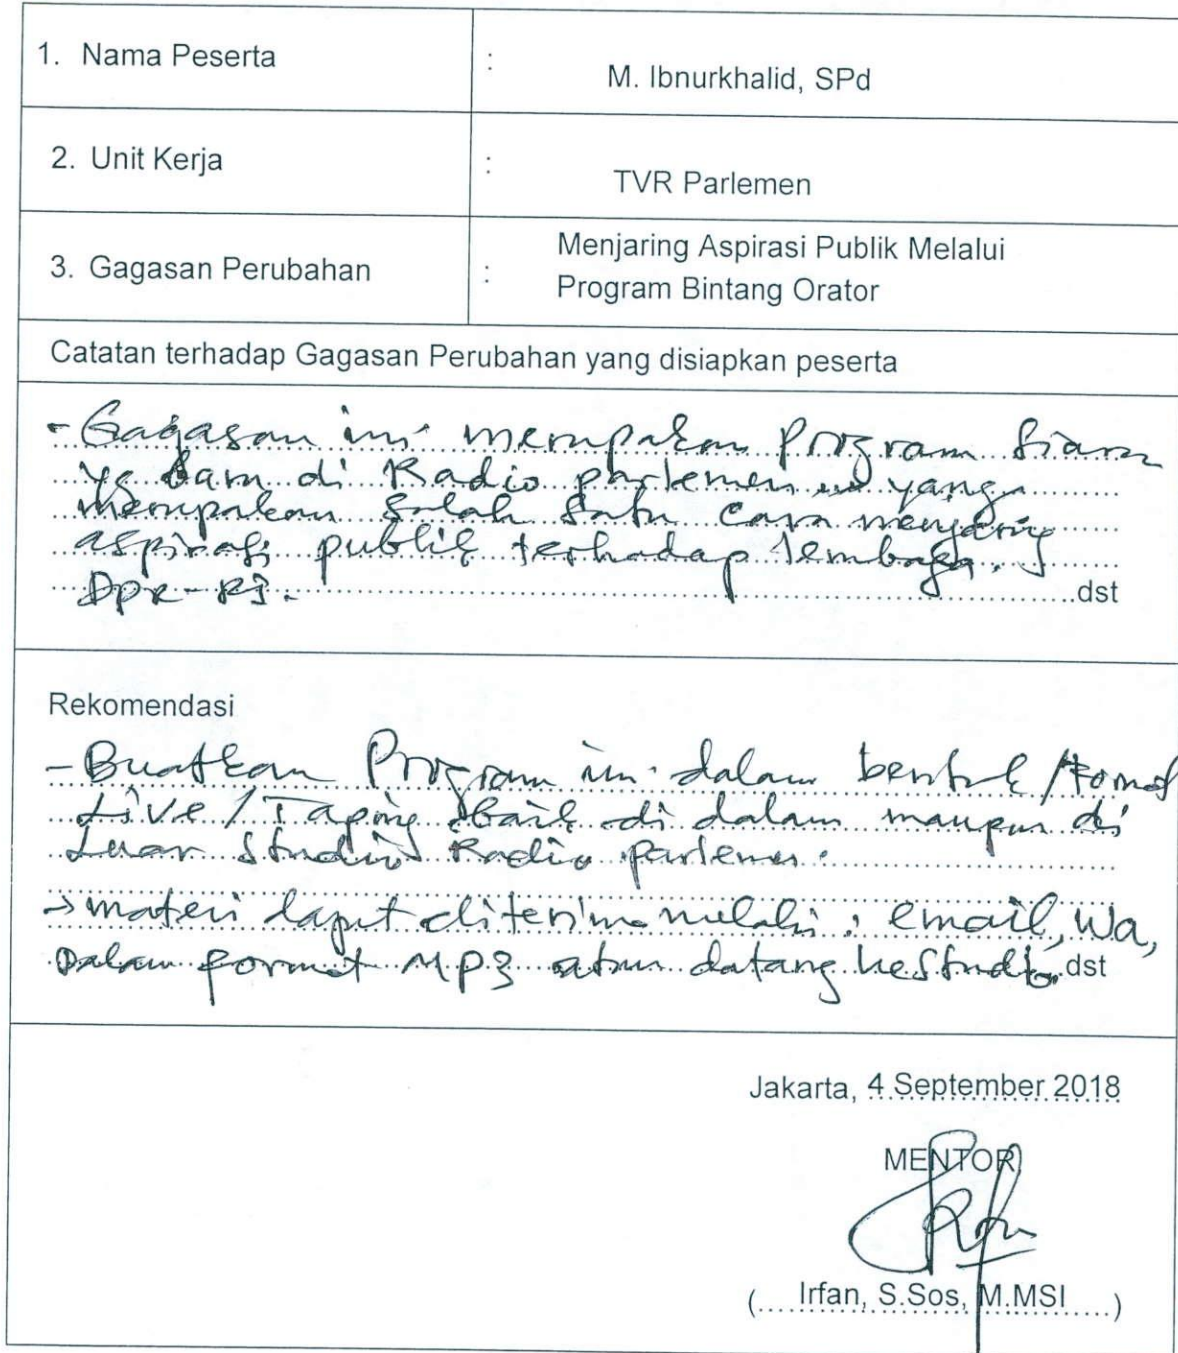 1. Nama Peserta : M. Ibnurkhalid, SPd
2. Unit Kerja : TVR Parlemen
3. Gagasan Perubahan : Menjaring Aspirasi Publik Melalui
Program Bintang Orator
Catatan terhadap Gagasan Perubahan yang disiapkan peserta
- Gagasan ini merupakan Program Siaran
yg baru di Radio parlemen yang
merupakan salah satu cara menjaring
aspirasi publik terhadap lembaga
DPR-RI. dst
Rekomendasi
- Buatkan Program ini dalam bentuk / Format
Live / Taping baik di dalam maupun di
Luar Studio Radio parlemen.
→ materi dapat diterima melalui : email, Wa,
Dalam format MP3 atau datang ke Studio. dst
Jakarta, 4 September 2018
MENTOR
(.... Irfan, S.Sos, M.MSI ....)